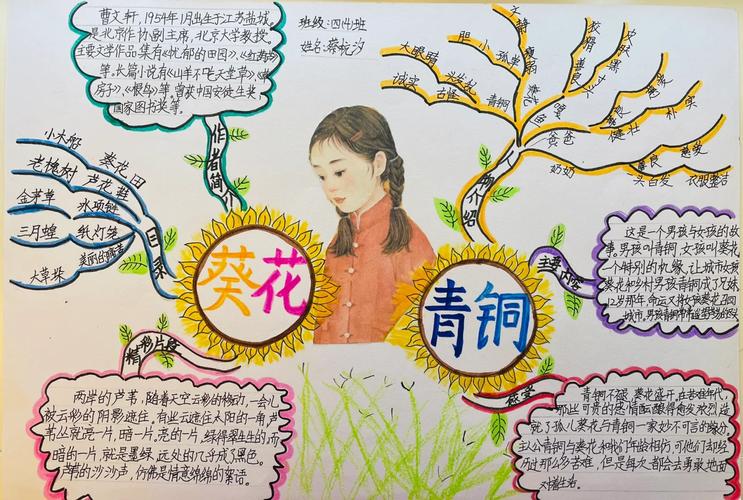 曹文轩，1954年1月出生于江苏盐城。
是北京作协副主席，北京大学教授。
主要文学作品集有《忧郁的田园》、《红葫芦》
等。长篇小说有《山羊不吃天堂草》、《草
房子》、《根鸟》等。曾获中国安徒生奖，
国家图书奖等。
班级：四(4)班
姓名：蔡梳汐
作者简介
目录
小木船
葵花田
老槐树
芦花鞋
金茅草
冰项链
三月蝗
纸灯笼
大草垛
葵花
青铜
人物介绍
青铜
诚实
古怪
大眼睛
葵花
胆小
孤单
文静
嘎鱼
狡猾
善良
爸爸
健壮
朴实
奶奶
善良
慈爱
头白发
衣服整洁
主要内容
这是一个男孩与女孩的故
事。男孩叫青铜，女孩叫葵花
一个特别的机缘，让城市女孩
葵花和乡村男孩青铜成了兄妹
12岁那年，命运又将女孩葵花召回
精彩片段
两岸的芦苇，随着天空云彩的移动，一会儿
被云彩的阴影遮住。有些云遮住太阳的一角，芦
苇丛就亮一片，暗一片。亮的一片，绿得翠生生的，而
暗的一片，就是墨绿，远处的几乎成了黑色。
芦苇的沙沙声，仿佛是情意绵绵的絮语。
感受
青铜不锈，葵花盛开，在苦难年代，
那些可贵的感情酝酿得愈发浓烈，造
就了孤儿葵花与青铜一家妙不可言的缘分
主人公青铜与葵花和我们年龄相仿，可他们却经
历过那么多苦难，但是每次都会去勇敢地面
对着生活